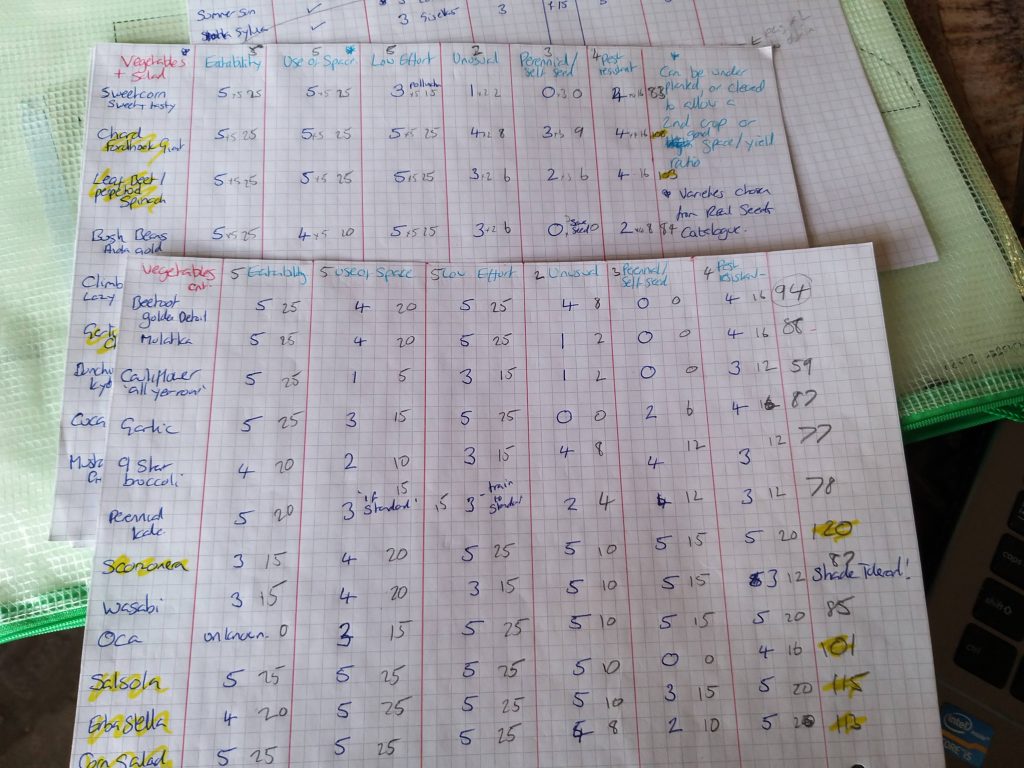 Summer Sun ✓ 3
Sylvia ✓ 3 3 +15
5 5 * 5 2 3 4
Vegetables + Salad Eatability Use of Space Low Effort Unusual Perennial/ Self seed Pest resistant
Sweetcorn 5 x5 25 5 x5 25 3 x5 15 1 x2 2 0 x3 0 4 x4 16 83
Sweet + tasty
Chard 5 x5 25 5 x5 25 5 x5 25 4 x2 8 3 x3 9 4 x4 16
Fordhook Giant
Leaf Beet/ 5 x5 25 5 x5 25 5 x5 25 3 x2 6 2 x3 6 4 16 103
perpetual
Spinach
Bush Beans 5 x5 25 4 x5 20 5 x5 25 3 x2 6 0 2 x4 8 84
*
Can be under
planted, or cleared
to allow a
2nd crop or
good
Space/yield
ratio
* Varieties chosen
from Real Seeds
Catalogue.
Climb
Lazy
Vegetables cnt. 5 Eatability 5 Use of Space 5 Low Effort 2 Unusual 3 Perennial/ Self seed 4 Pest resistant
Beetroot 5 25 4 20 5 25 4 8 0 0 4 16 94
golden Detroit
Mulatka 5 25 4 20 5 25 1 2 0 0 4 16 88
Cauliflower 5 25 1 5 3 15 1 2 0 0 3 12 59
Garlic 5 25 3 15 5 25 0 0 2 6 4 16 87
9 Star 4 20 2 10 3 15 4 8 4 12 3 12 77
broccoli
Perennial 5 20 3 "if Standard" 15 3 -train to standard 15 2 4 4 12 3 12 78
kale
Scorzonera 3 15 4 20 5 25 5 10 5 15 5 20 120
Wasabi 3 15 4 20 3 15 5 10 5 15 3 12 87 Shade Tolerant!
Oca unknown 0 3 15 5 25 5 10 5 15 5 20 85
Salsola 5 25 5 25 5 25 5 10 0 0 4 16 101
Erbastella 4 20 5 25 5 25 5 10 3 15 5 20 115
Corn Salad 5 25 5 25 5 25 4 8 2 10 5 20 113
caps
shift
ctrl
intel
CORE i5